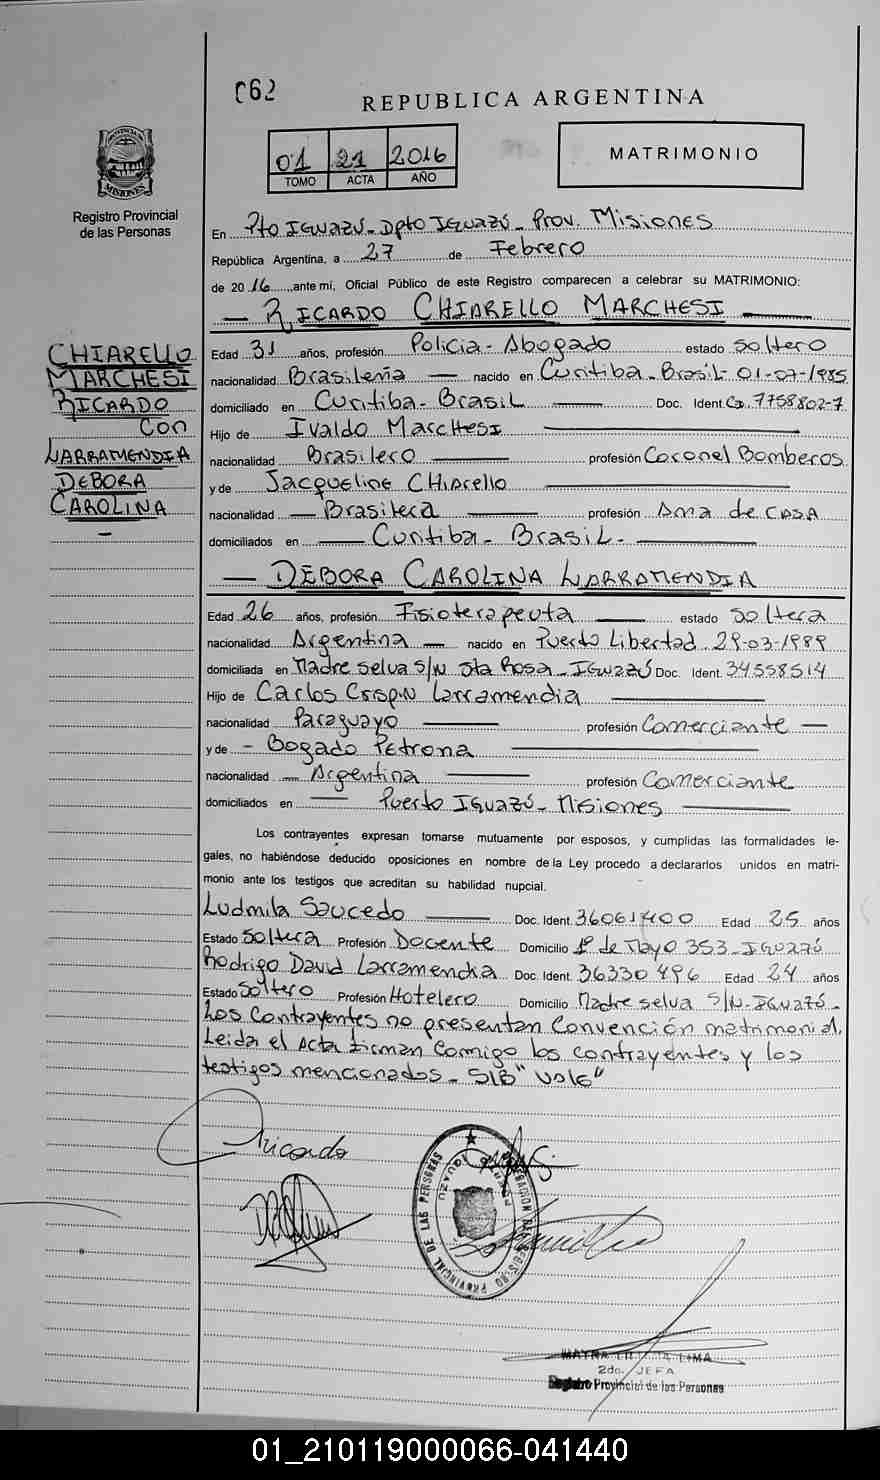 062
REPUBLICA ARGENTINA
01 21 2016
TOMO ACTA AÑO
MATRIMONIO
PROVINCIA DE MISIONES
Registro Provincial
de las Personas
En Pto IGUAZÚ - Dpto IGUAZÚ - Prov. Misiones
República Argentina, a 27 de Febrero
de 2016, ante mí, Oficial Público de este Registro comparecen a celebrar su MATRIMONIO:
— RICARDO CHIARELLO MARCHESI —
CHIARELLO
MARCHESI
RICARDO
CON
LARRAMENDIA
DEBORA
CAROLINA
—
Edad 31 años, profesión Policia - Abogado estado soltero
nacionalidad Brasileña — nacido en Curitiba - Brasil - 01-07-1985
domiciliado en Curitiba - Brasil — Doc. Ident. 7758802-7
Hijo de Ivaldo Marchesi —
nacionalidad Brasilero — profesión Coronel Bomberos
y de Jacqueline Chiarello —
nacionalidad — Brasilera — profesión Ama de casa
domiciliados en — Curitiba - Brasil - —
— DEBORA CAROLINA LARRAMENDIA
Edad 26 años, profesión Fisioterapeuta — estado soltera
nacionalidad Argentina — nacido en Puerto Libertad 29-03-1989
domiciliada en Madre selva S/N Sta Rosa - IGUAZÚ Doc. Ident. 34558514
Hijo de Carlos Crispin Larramendia —
nacionalidad Paraguayo — profesión Comerciante —
y de - Bogado Petrona —
nacionalidad — Argentina — profesión Comerciante
domiciliados en — Puerto IGUAZÚ - Misiones —
Los contrayentes expresan tomarse mutuamente por esposos, y cumplidas las formalidades le-
gales, no habiéndose deducido oposiciones en nombre de la Ley procedo a declararlos unidos en matri-
monio ante los testigos que acreditan su habilidad nupcial.
Ludmila Saucedo — Doc. Ident. 36061400 Edad 25 años
Estado Soltera Profesión Docente Domicilio 1º de Mayo 353 - IGUAZÚ
Rodrigo David Larramendia Doc. Ident. 36330496 Edad 24 años
Estado Soltero Profesión Hotelero Domicilio Madre selva S/N - IGUAZÚ -
Los Contrayentes no presentan Convención matrimonial.
Leida el Acta firman Comigo los contrayentes y los
testigos mencionados - S/B "Vale"
Ricardo
REGISTRO PROVINCIAL DE LAS PERSONAS
2do. JEFA
Registro Provincial de las Personas
01_210119000066-041440